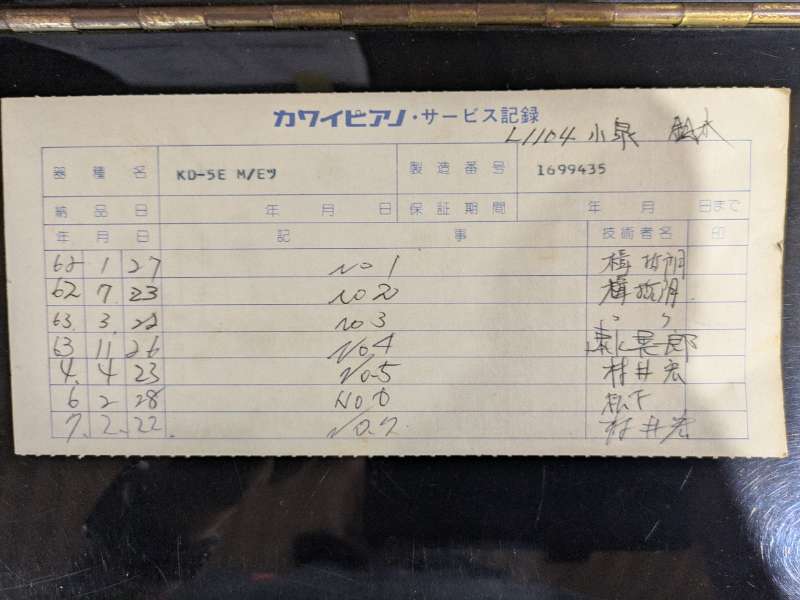 カワイピアノ・サービス記録
L1104 小泉 鈴木
器種名 KD-5E M/Eツ 製造番号 1699435
納品日 年 月 日 保証期間 年 月 日まで
年 月 日 記 事 技術者名 印
62 1 27 No 1
62 7 23 No 2
63. 3. 22 No 3 〃 〃
63 11 26 No 4
4. 4 23 No.5 村井宏
6 2 28 No 6 松下
7. 2. 22. No.7. 村井宏